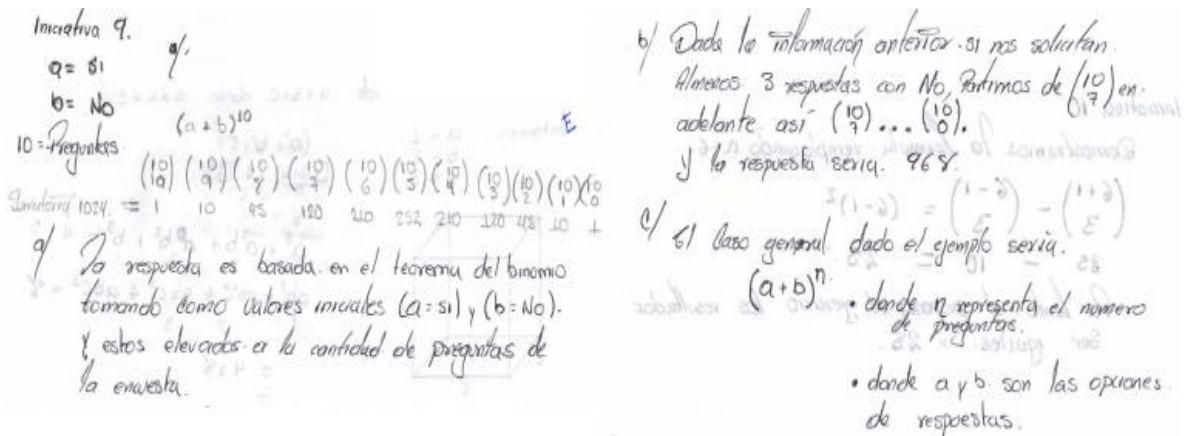 Iniciativa 9.
a = si
b = No
10 = Preguntas
a/.
(a + b)^10
E
(10 10) (10 9) (10 8) (10 7) (10 6) (10 5) (10 4) (10 3) (10 2) (10 1) (10 0)
1024 = 1 10 45 120 210 252 210 120 45 10 1
a/ La respuesta es basada en el teorema del binomio
tomando como valores iniciales (a = si) y (b = No).
Y estos elevados a la cantidad de preguntas de
la encuesta.
b/ Dada la información anterior si nos solicitan
Almenos 3 respuestas con No, Partimos de (10 7) en
adelante así (10 7) ... (10 0).
y la respuesta seria. 968.
c/ El Caso general dado el ejemplo seria.
(a + b)^n.
• donde n representa el numero
de preguntas.
• donde a y b son las opciones
de respuestas.